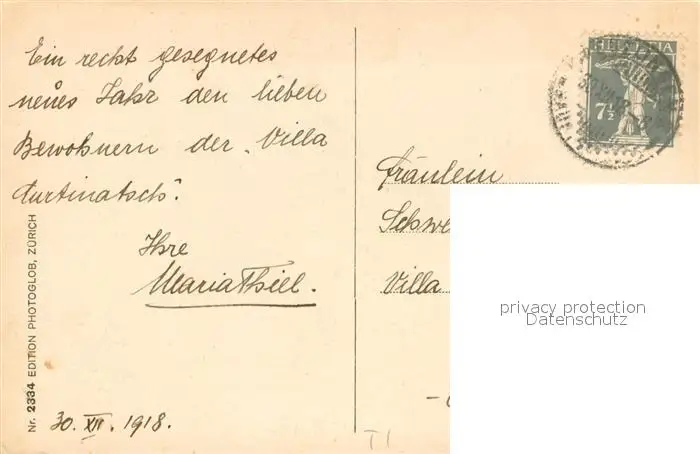 Ein recht gesegnetes
neues Jahr den lieben
Bewohnern der „Villa
Curtinatsch“.
Ihre
Maria Thiel.
30. XII. 1918.
Nr. 2334 EDITION PHOTOGLOB, ZÜRICH
HELVETIA
7½
Fräulein
Schwe
Villa
privacy protection
Datenschutz
T1